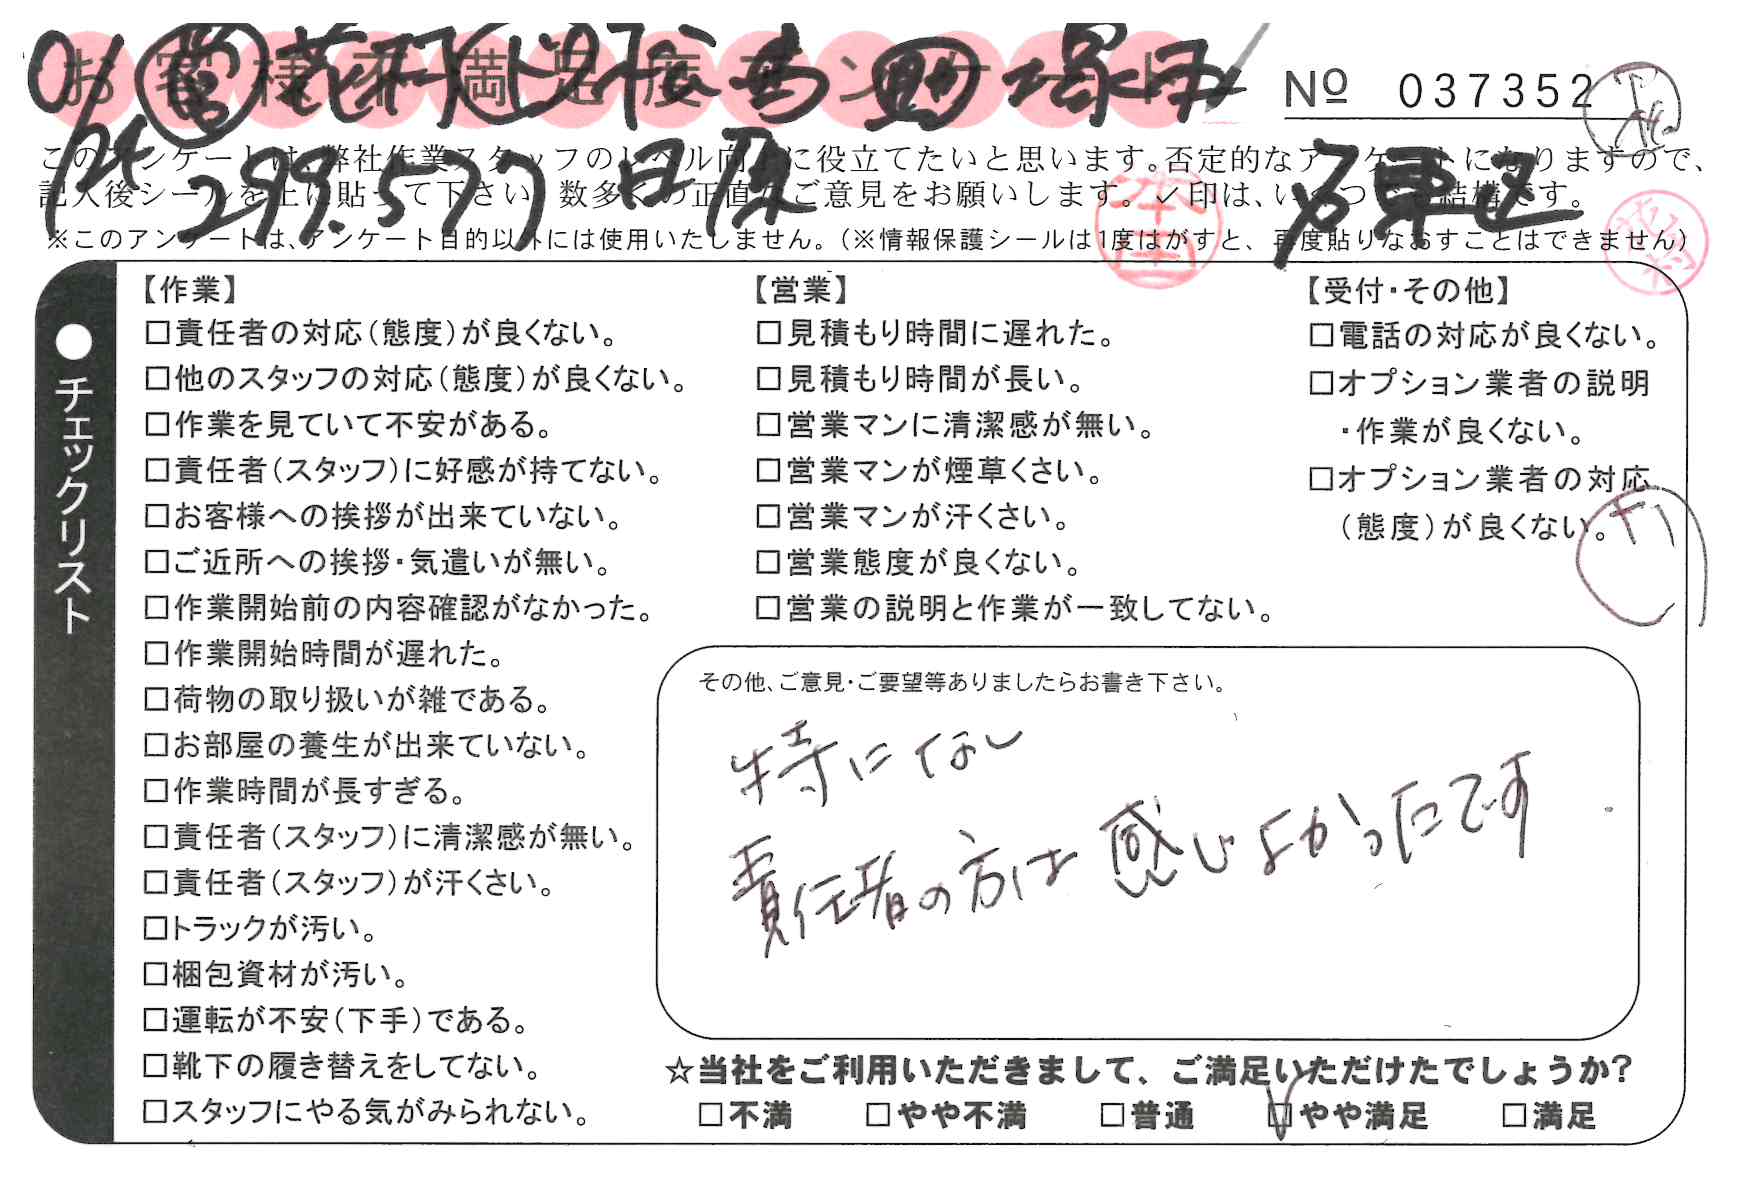 お客様不満足度アンケート
№ 037352
299.577
このアンケートは、弊社作業スタッフのレベル向上に役立てたいと思います。否定的なアンケートになりますので、
記入後シールを上に貼って下さい。数多くの正直なご意見をお願いします。✓印は、いくつでも結構です。
※このアンケートは、アンケート目的以外には使用いたしません。(※情報保護シールは1度はがすと、再度貼りなおすことはできません)
●チェックリスト
【作業】
□責任者の対応(態度)が良くない。
□他のスタッフの対応(態度)が良くない。
□作業を見ていて不安がある。
□責任者(スタッフ)に好感が持てない。
□お客様への挨拶が出来ていない。
□ご近所への挨拶・気遣いが無い。
□作業開始前の内容確認がなかった。
□作業開始時間が遅れた。
□荷物の取り扱いが雑である。
□お部屋の養生が出来ていない。
□作業時間が長すぎる。
□責任者(スタッフ)に清潔感が無い。
□責任者(スタッフ)が汗くさい。
□トラックが汚い。
□梱包資材が汚い。
□運転が不安(下手)である。
□靴下の履き替えをしてない。
□スタッフにやる気がみられない。
【営業】
□見積もり時間に遅れた。
□見積もり時間が長い。
□営業マンに清潔感が無い。
□営業マンが煙草くさい。
□営業マンが汗くさい。
□営業態度が良くない。
□営業の説明と作業が一致してない。
【受付・その他】
□電話の対応が良くない。
□オプション業者の説明
・作業が良くない。
□オプション業者の対応
(態度)が良くない。
その他、ご意見・ご要望等ありましたらお書き下さい。
特になし
責任者の方は感じよかったです
☆当社をご利用いただきまして、ご満足いただけたでしょうか?
□不満 □やや不満 □普通 ☑やや満足 □満足